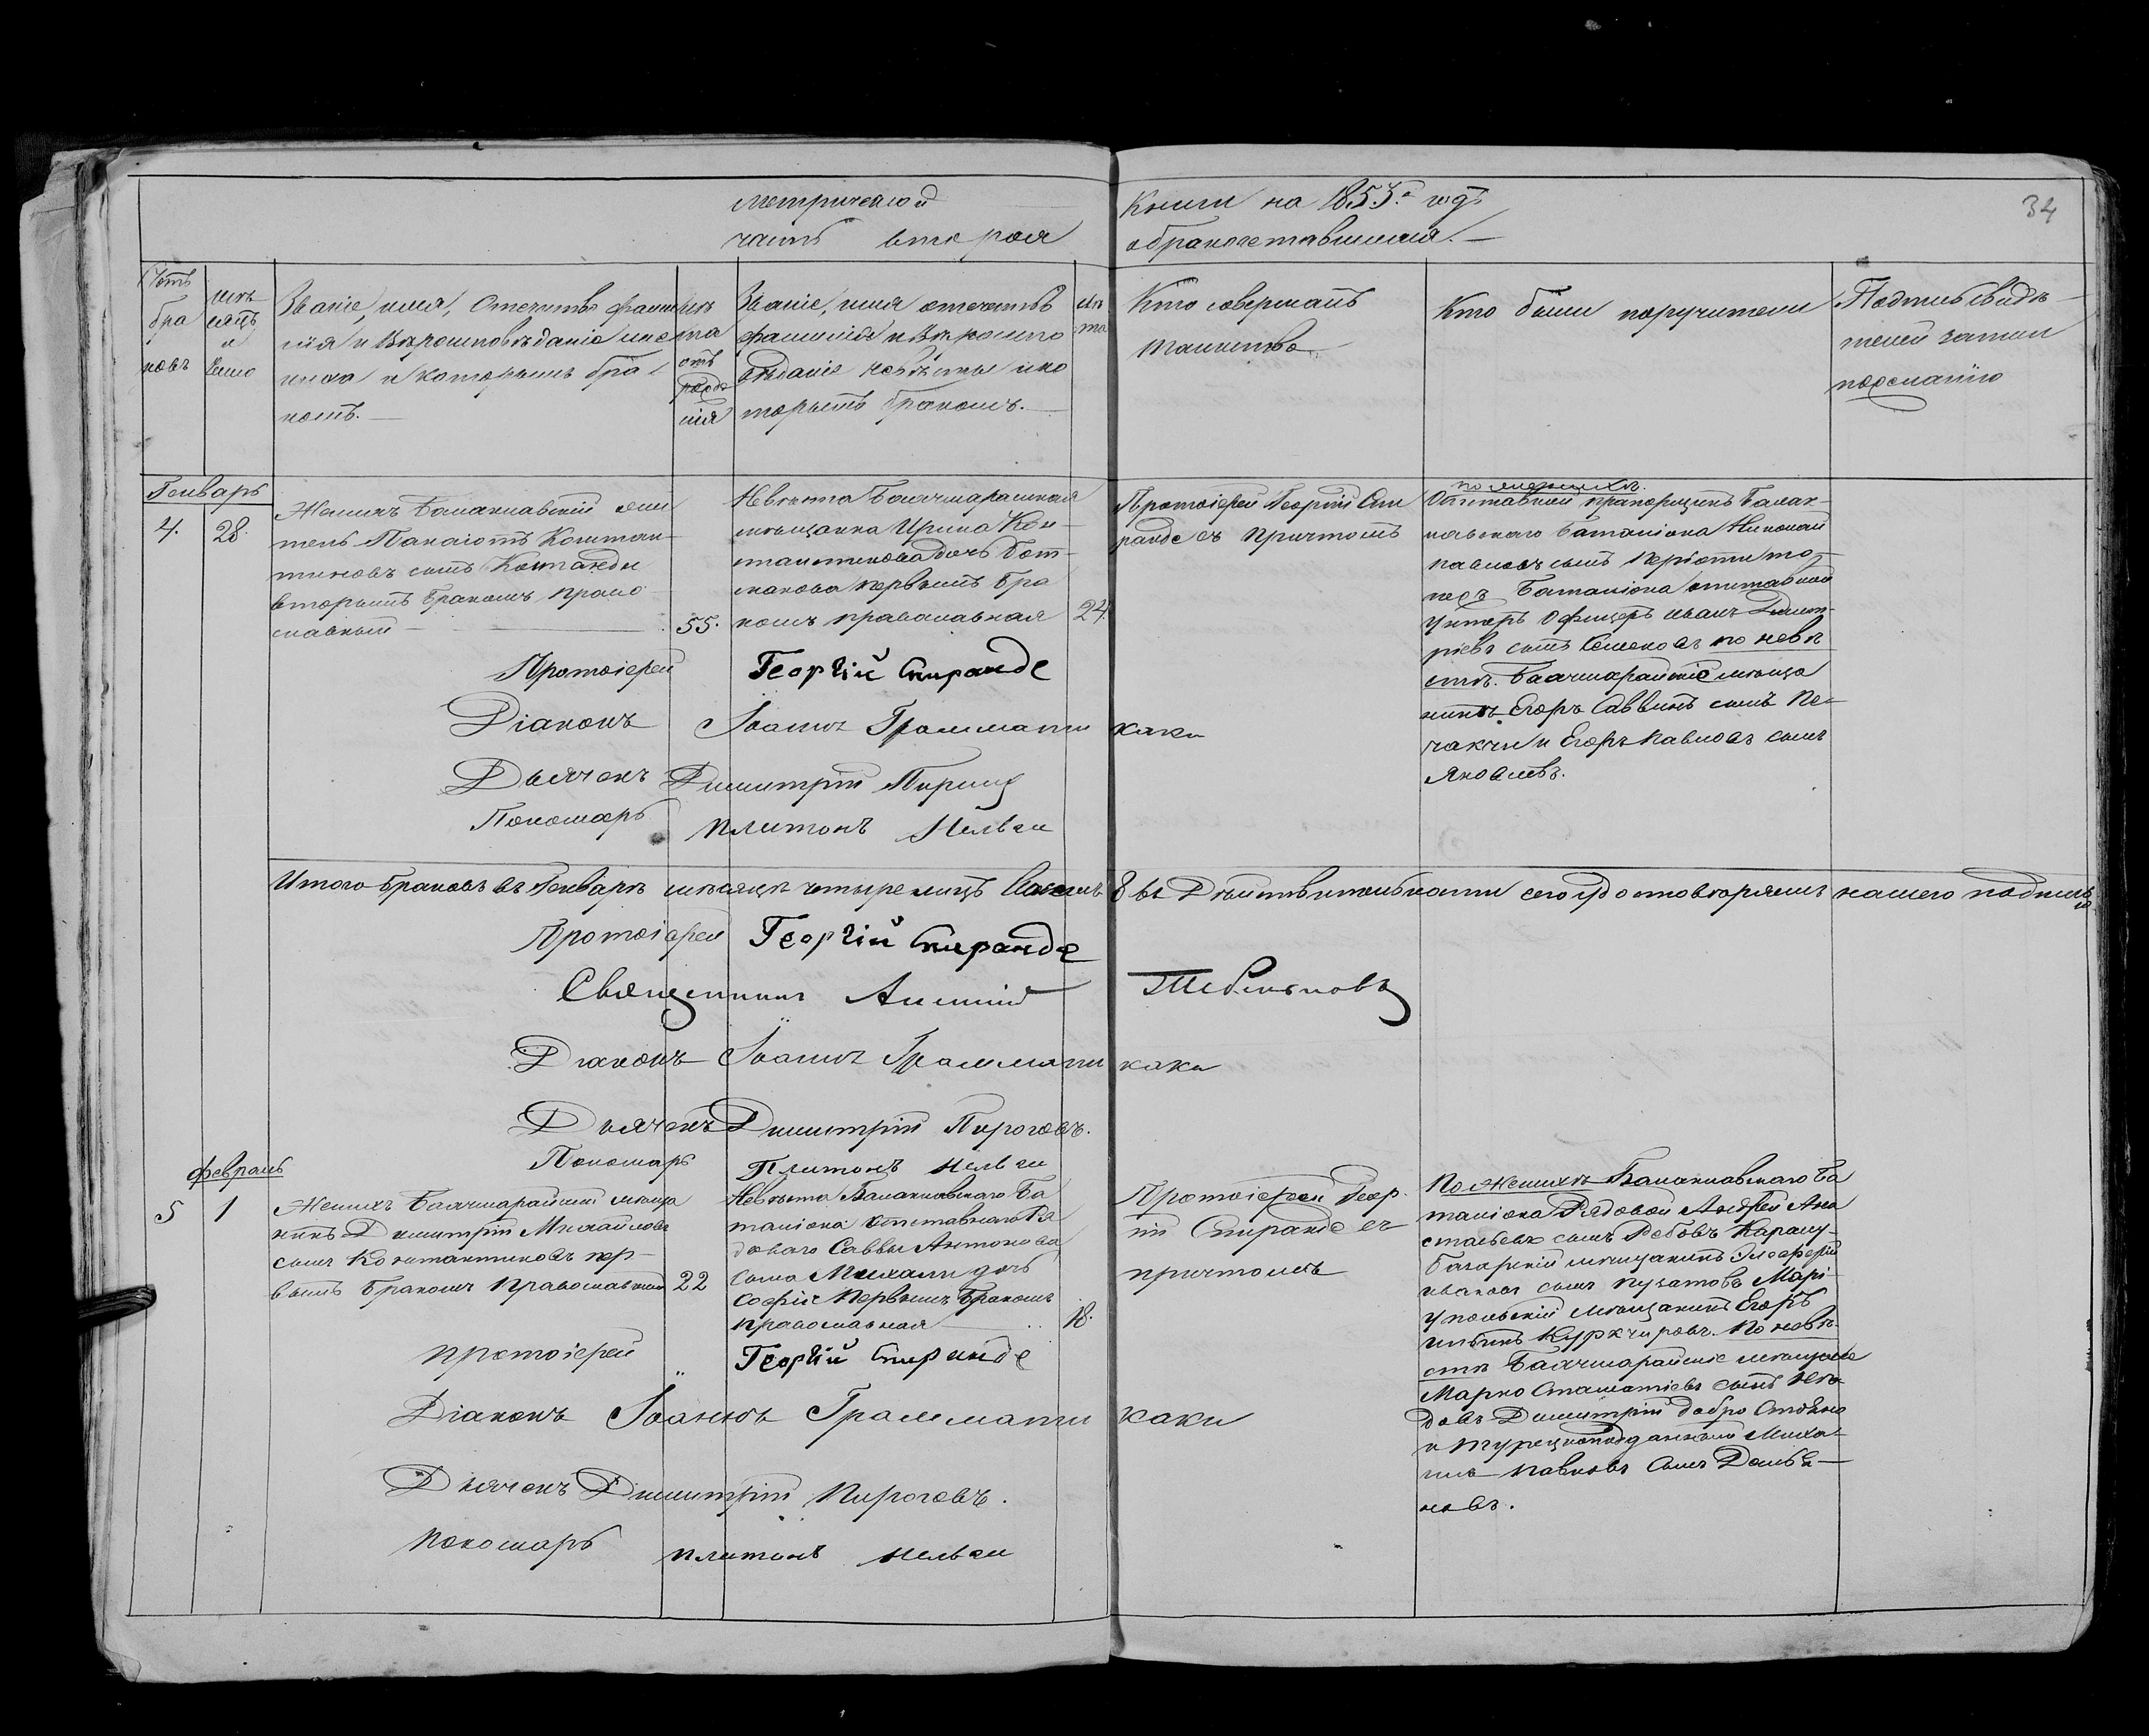 Метрической
Книги на 1853. годъ
34
часть вторая
о бракосочетавшихся.
Счетъ браковъ
Мѣсяцъ и число
Званіе, имя, Отечество фами
лія и Вѣроисповѣданіе же
ниха и которымъ бра
комъ.
Лѣта отъ рожденія
Званіе, имя отечество
фамилія и Вѣроиспо
вѣданіе невѣсты и ко
торымъ бракомъ.
Лѣта
Кто совершалъ
таинство
Кто были поручители
Подпись свидѣ
телей записи
по желанію
Генварь
4. 28.
Женихъ Балаклавскій жи
тель Панаіотъ Констан
тиновъ сынъ
вторымъ бракомъ право
славный
55.
Невѣста Бахчисарайская
мѣщанка Ирина Кон
стантинова дочь
первымъ бра
комъ православная
24.
Протоіерей Георгій Спи
ранде съ причтомъ
по женихѣ
Отставной прапорщикъ Балак
лавскаго Баталіона Николай
Павловъ сынъ
Баталіона отставной
унтеръ Офицеръ Иванъ Димит
ріевъ сынъ по невѣ
стѣ. Бахчисарайскіе мѣща
нинъ Егоръ Саввинъ сынъ Пе
чакчи и Егоръ Павловъ сынъ
Яковлевъ.
Протоіерей Георгій Спиранде
Діаконъ Іоаннъ Граммати каки
Дьячекъ Димитрій
Пономарь Платонъ
Итого браковъ въ Генварѣ мѣсяцѣ четыре лицъ восемь 8 въ Дѣйствительности сего удостовѣряемъ нашею подписью
Протоіерей Георгій Спиранде
Священникъ
Діаконъ Іоаннъ Граммати каки
Дьячекъ Димитрій Пироговъ.
Пономарь Платонъ
Февраль
5 1
Женихъ Бахчисарайскій мѣща
нинъ Димитрій Михайловъ
сынъ Константиновъ пер
вымъ бракомъ Православный
22
Невѣста Балаклавскаго Ба
таліона отставнаго Ря
доваго Саввы Антонова
сына Михали дочь
Софія Первымъ бракомъ
православная
18.
Протоіерей Геор
гій Спиранде съ
причтомъ
По Женихѣ Балаклавскаго Ба
таліона Рядовой Андрей Ана
стасьевъ сынъ Карасу
базарскій мѣщанинъ Элевферій
Ивановъ сынъ Мари
упольскій мѣщанинъ Егоръ
По невѣ
стѣ Бахчисарайскіе мѣщане
Марко сынъ
Димитрій
и турецкоподданный Миха
илъ Павловъ сынъ
новъ.
протоіерей Георгій Спиранде
Діаконъ Іоаннъ Граммати каки
Дьячекъ Димитрій Пироговъ.
Пономарь Платонъ